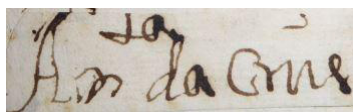 Anta da Crus